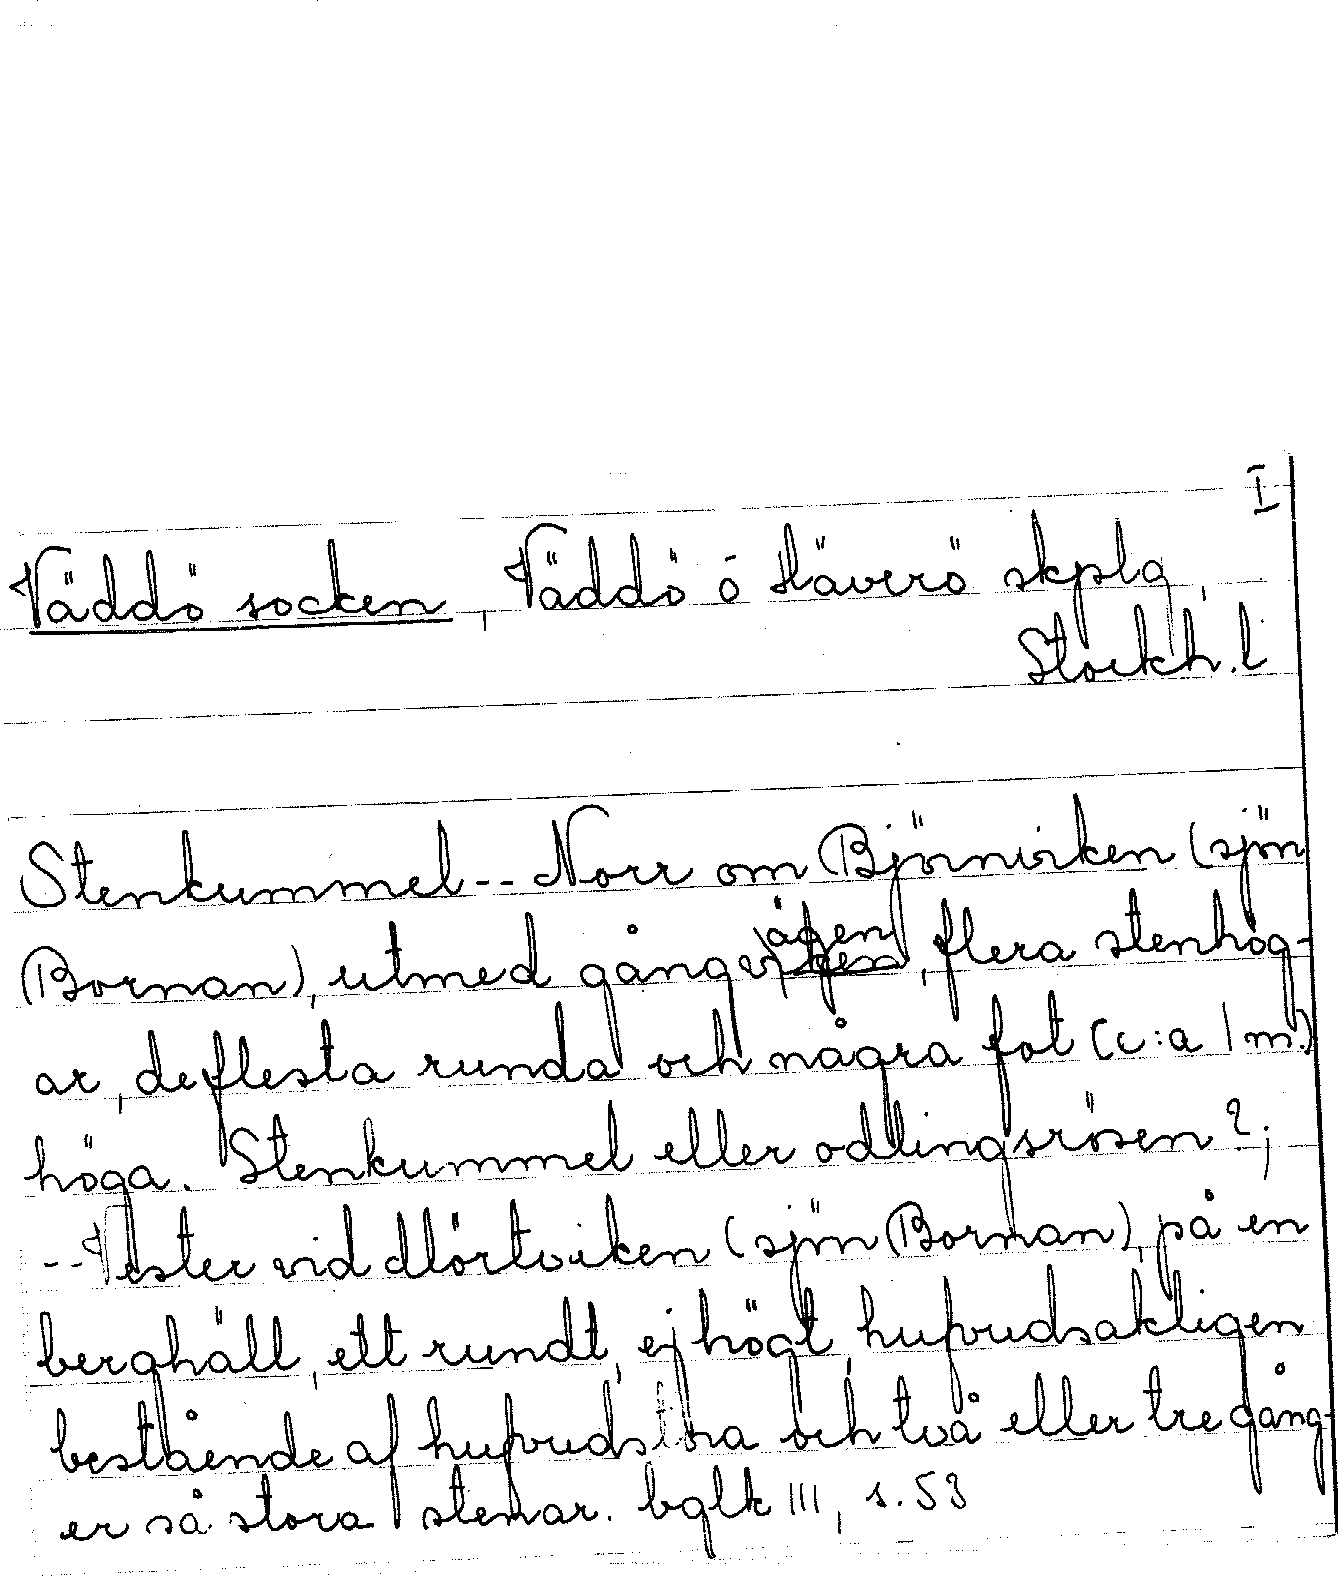 I
Väddö socken, Väddö ō Häverö skplg,
Stockh. l
Stenkummel -- Norr om Björnviken (sjön
Bornan), utmed gångvägen, flera stenhög-
ar, de flesta runda och några fot (c:a 1 m.)
höga. Stenkummel eller odlingsrösen?;
-- Vester vid Mörtviken (sjön Bornan), på en
berghäll, ett rundt, ej högt, hufvudsakligen
bestående af hufvudstora och två eller tre gång-
er så stora stenar. bglk III, s. 53